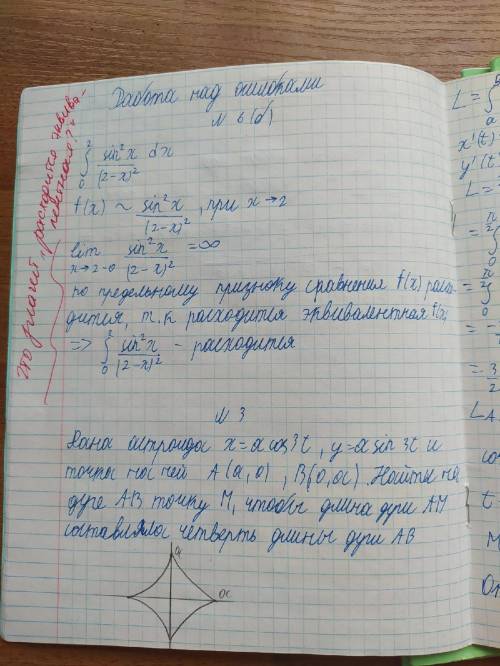 Работа над ошибками
N 6 (б)
∫₀² sin²x / (2-x)² dx
f(x) ~ sin²x / (2-x)², при x→2
lim x→2-0 sin²x / (2-x)² = ∞
по предельному признаку сравнения f(x) расхо-
дится, т.к расходится эквивалентная f(x)
=> ∫₀² sin²x / (2-x)² - расходится
Что значит "расходится эквива-
лентная"??
N 3
Дана астроида x = a cos3t, y = a sin 3t и
точки на ней A(a, 0), B(0, a). Найти на
дуге AB точку M, чтобы длина дуги AM
составляла четверть длины дуги AB
a
a
L = ∫
x'(t)
y'(t)
L =
= ∫
= ∫
= -
= 3/2
L A
t
M